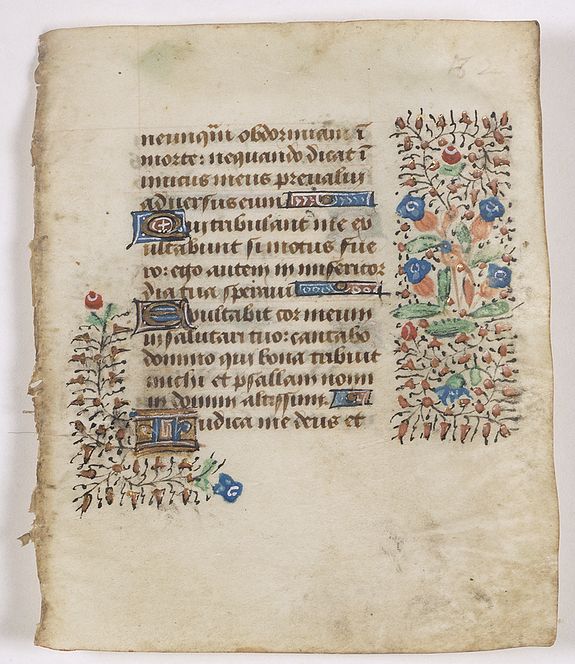 ne unq̄m obdormiam ī
morte: nequando dicat ī
imicus meus prevalui
adversus eum
Qui tribulant me ex
ultabunt si motus fue
ro: ego autem in misericor
dia tua speravi
Exultabit cor meum
in salutari tuo: cantabo
domino qui bona tribuit
michi et psallam nomi
ni domini altissimi
Iudica me deus et